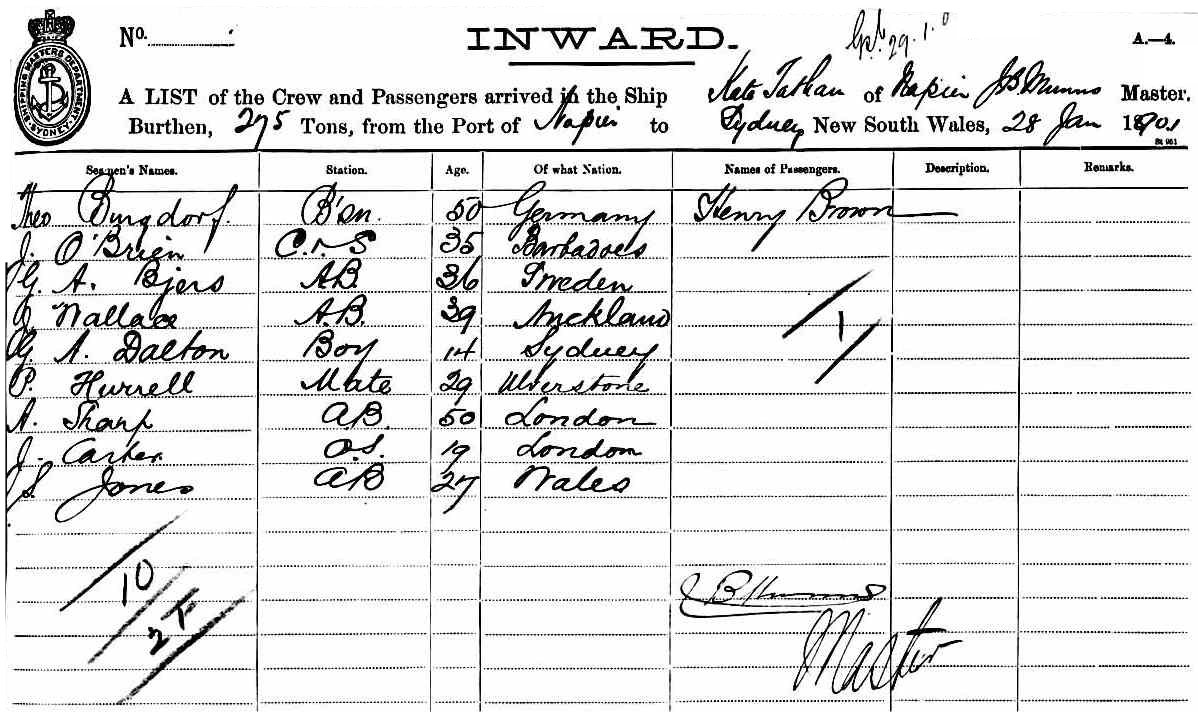 No.
INWARD.
29.1.0
A.—4.
SHIPPING MASTERS DEPARTMENT SYDNEY
A LIST of the Crew and Passengers arrived in the Ship Kate Tatham of Napier J B Munns Master.
Burthen, 275 Tons, from the Port of Napier to Sydney, New South Wales, 28 Jan 1901
Seamen's Names. Station. Age. Of what Nation. Names of Passengers. Description. Remarks.
Theo Burgdorf. B'sn. 50 Germany Henry Brown
J. O'Brien C. & S 35 Barbadoes
G. A. Bjers A.B. 36 Sweden
J Wallace A.B. 39 Auckland
G. A. Dalton Boy 14 Sydney
P. Hurrell Mate 29 Ulverstone
A. Sharp A.B. 50 London
J. Carter O.S. 19 London
J S. Jones AB 27 Wales
1
10
2
J B Munns
Master